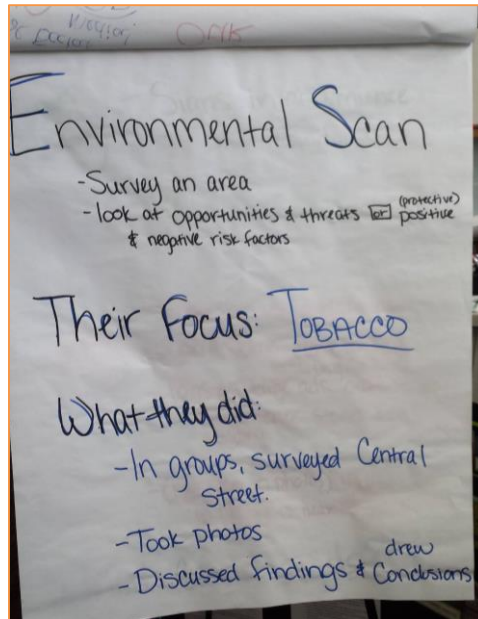 Environmental Scan
- Survey an area
- look at opportunities & threats or (protective) positive
& negative risk factors
Their Focus: TOBACCO
What they did:
- In groups, surveyed Central
Street.
- Took photos
- Discussed findings & drew Conclusions